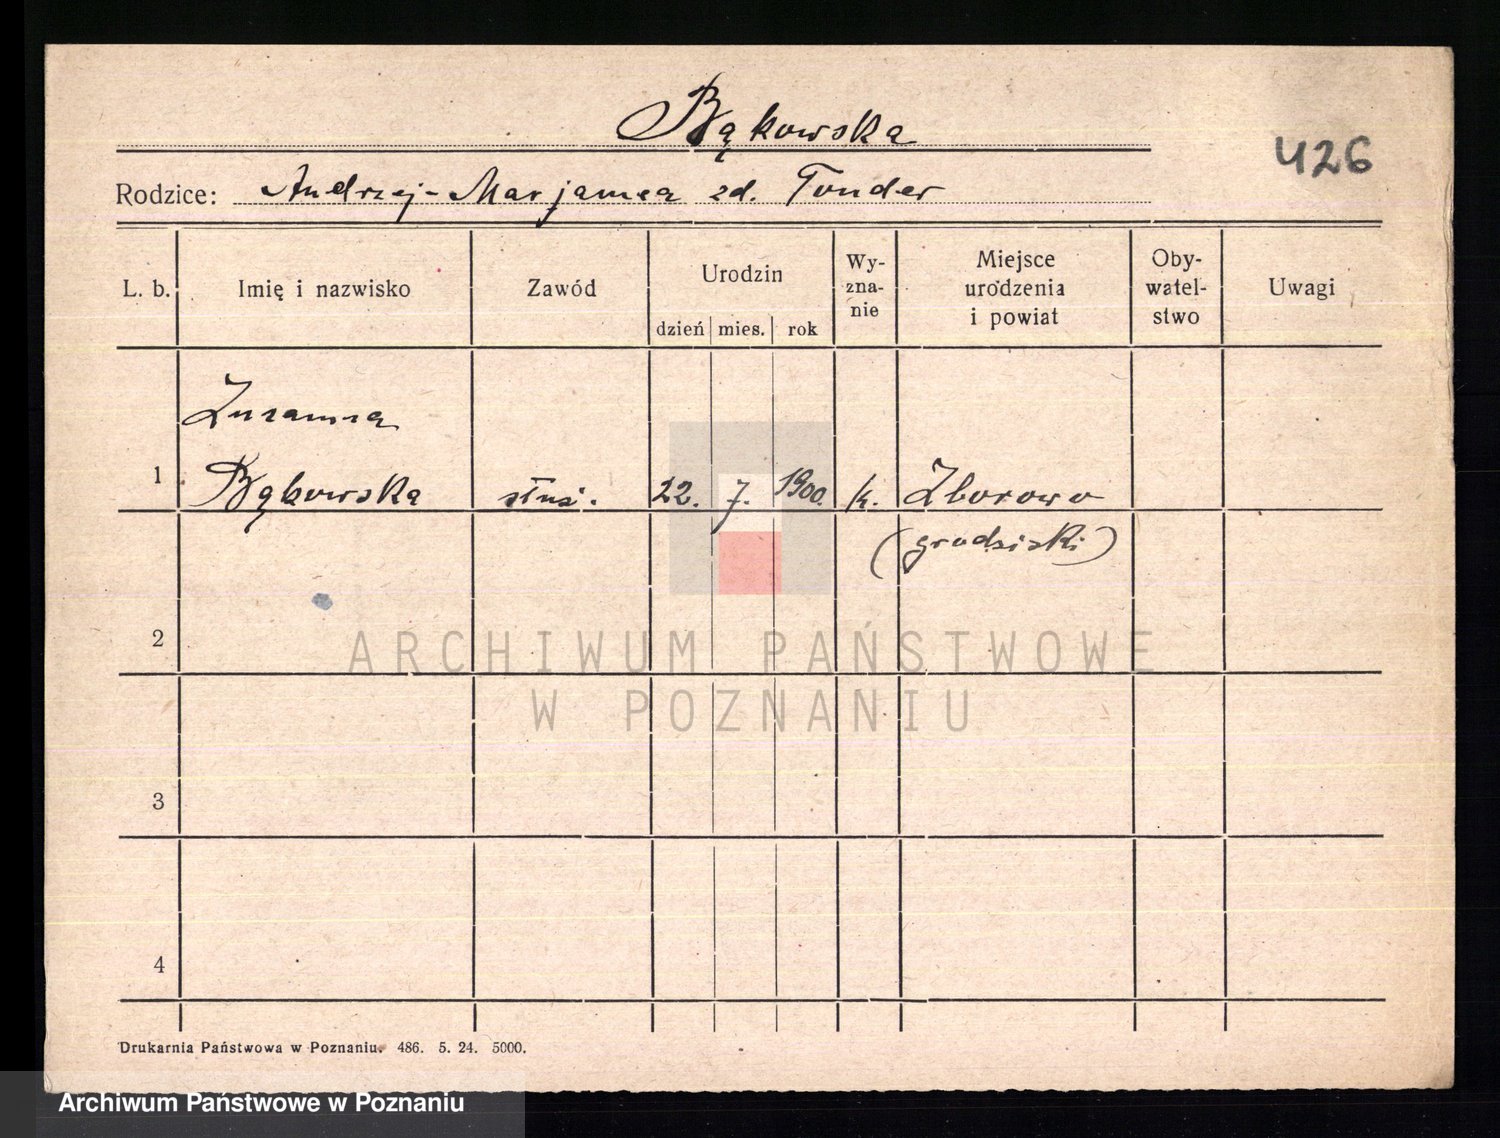 Bąkowska
426
Rodzice: Andrzej - Marjanna zd. Tonder
L. b.
Imię i nazwisko
Zawód
Urodzin
dzień mies. rok
Wy-
zna-
nie
Miejsce
urodzenia
i powiat
Oby-
watel-
stwo
Uwagi
Zuzanna
1 Bąkowska służ. 22. 7. 1900. k. Zborowo
(grodziski)
2
3
4
ARCHIWUM PAŃSTWOWE
W POZNANIU
Drukarnia Państwowa w Poznaniu. 486. 5. 24. 5000.
Archiwum Państwowe w Poznaniu